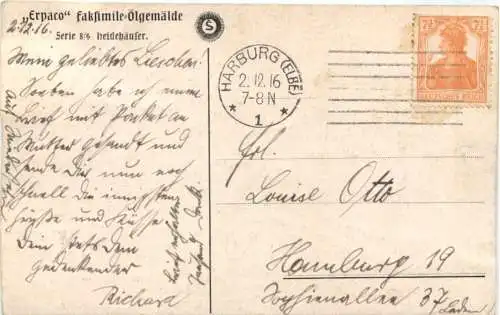 „Erpaco" Faksimile-Ölgemälde
Serie 8/6 Heidehäuser.
S
2.12.16.
Mein geliebtes Lieschen.
Soeben habe ich einen
Brief mit Paket an
Mutter gesandt und
sende Dir nun noch
schnell die innigsten
Grüße und Küsse
Dein stets Dein
gedenkender
Richard
Brief erhalten
Dank.
Auf
HARBURG (ELBE)
2.12.16
7-8N
* 1 *
7½ 7½
DEUTSCHES REICH
Frl.
Louise Otto
Hamburg 19
Sophienallee 37
(Laden)